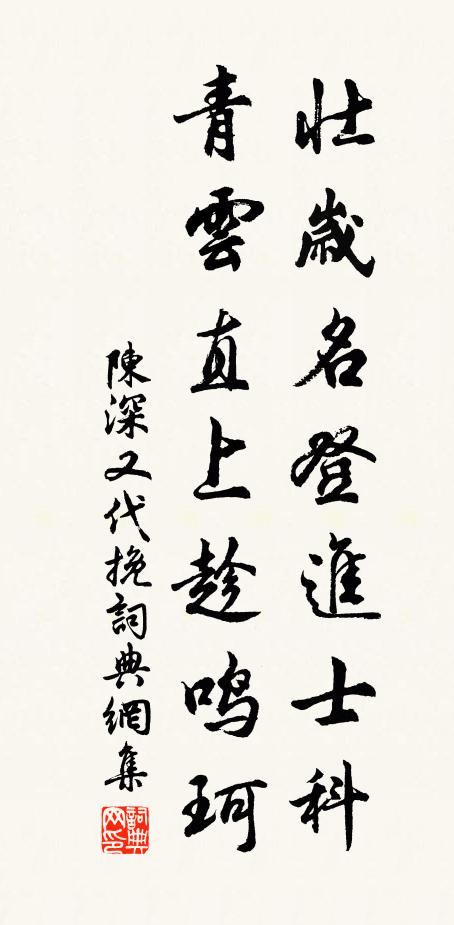 壯歲名登進士科
青雲直上趁鳴珂
陳深又代挽詞典網集
詞典網印